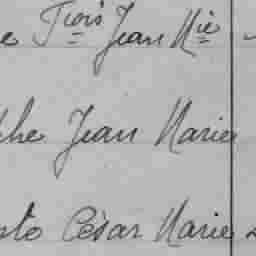 e Fçois Jean Mie
he Jean Marie
sto César Marie